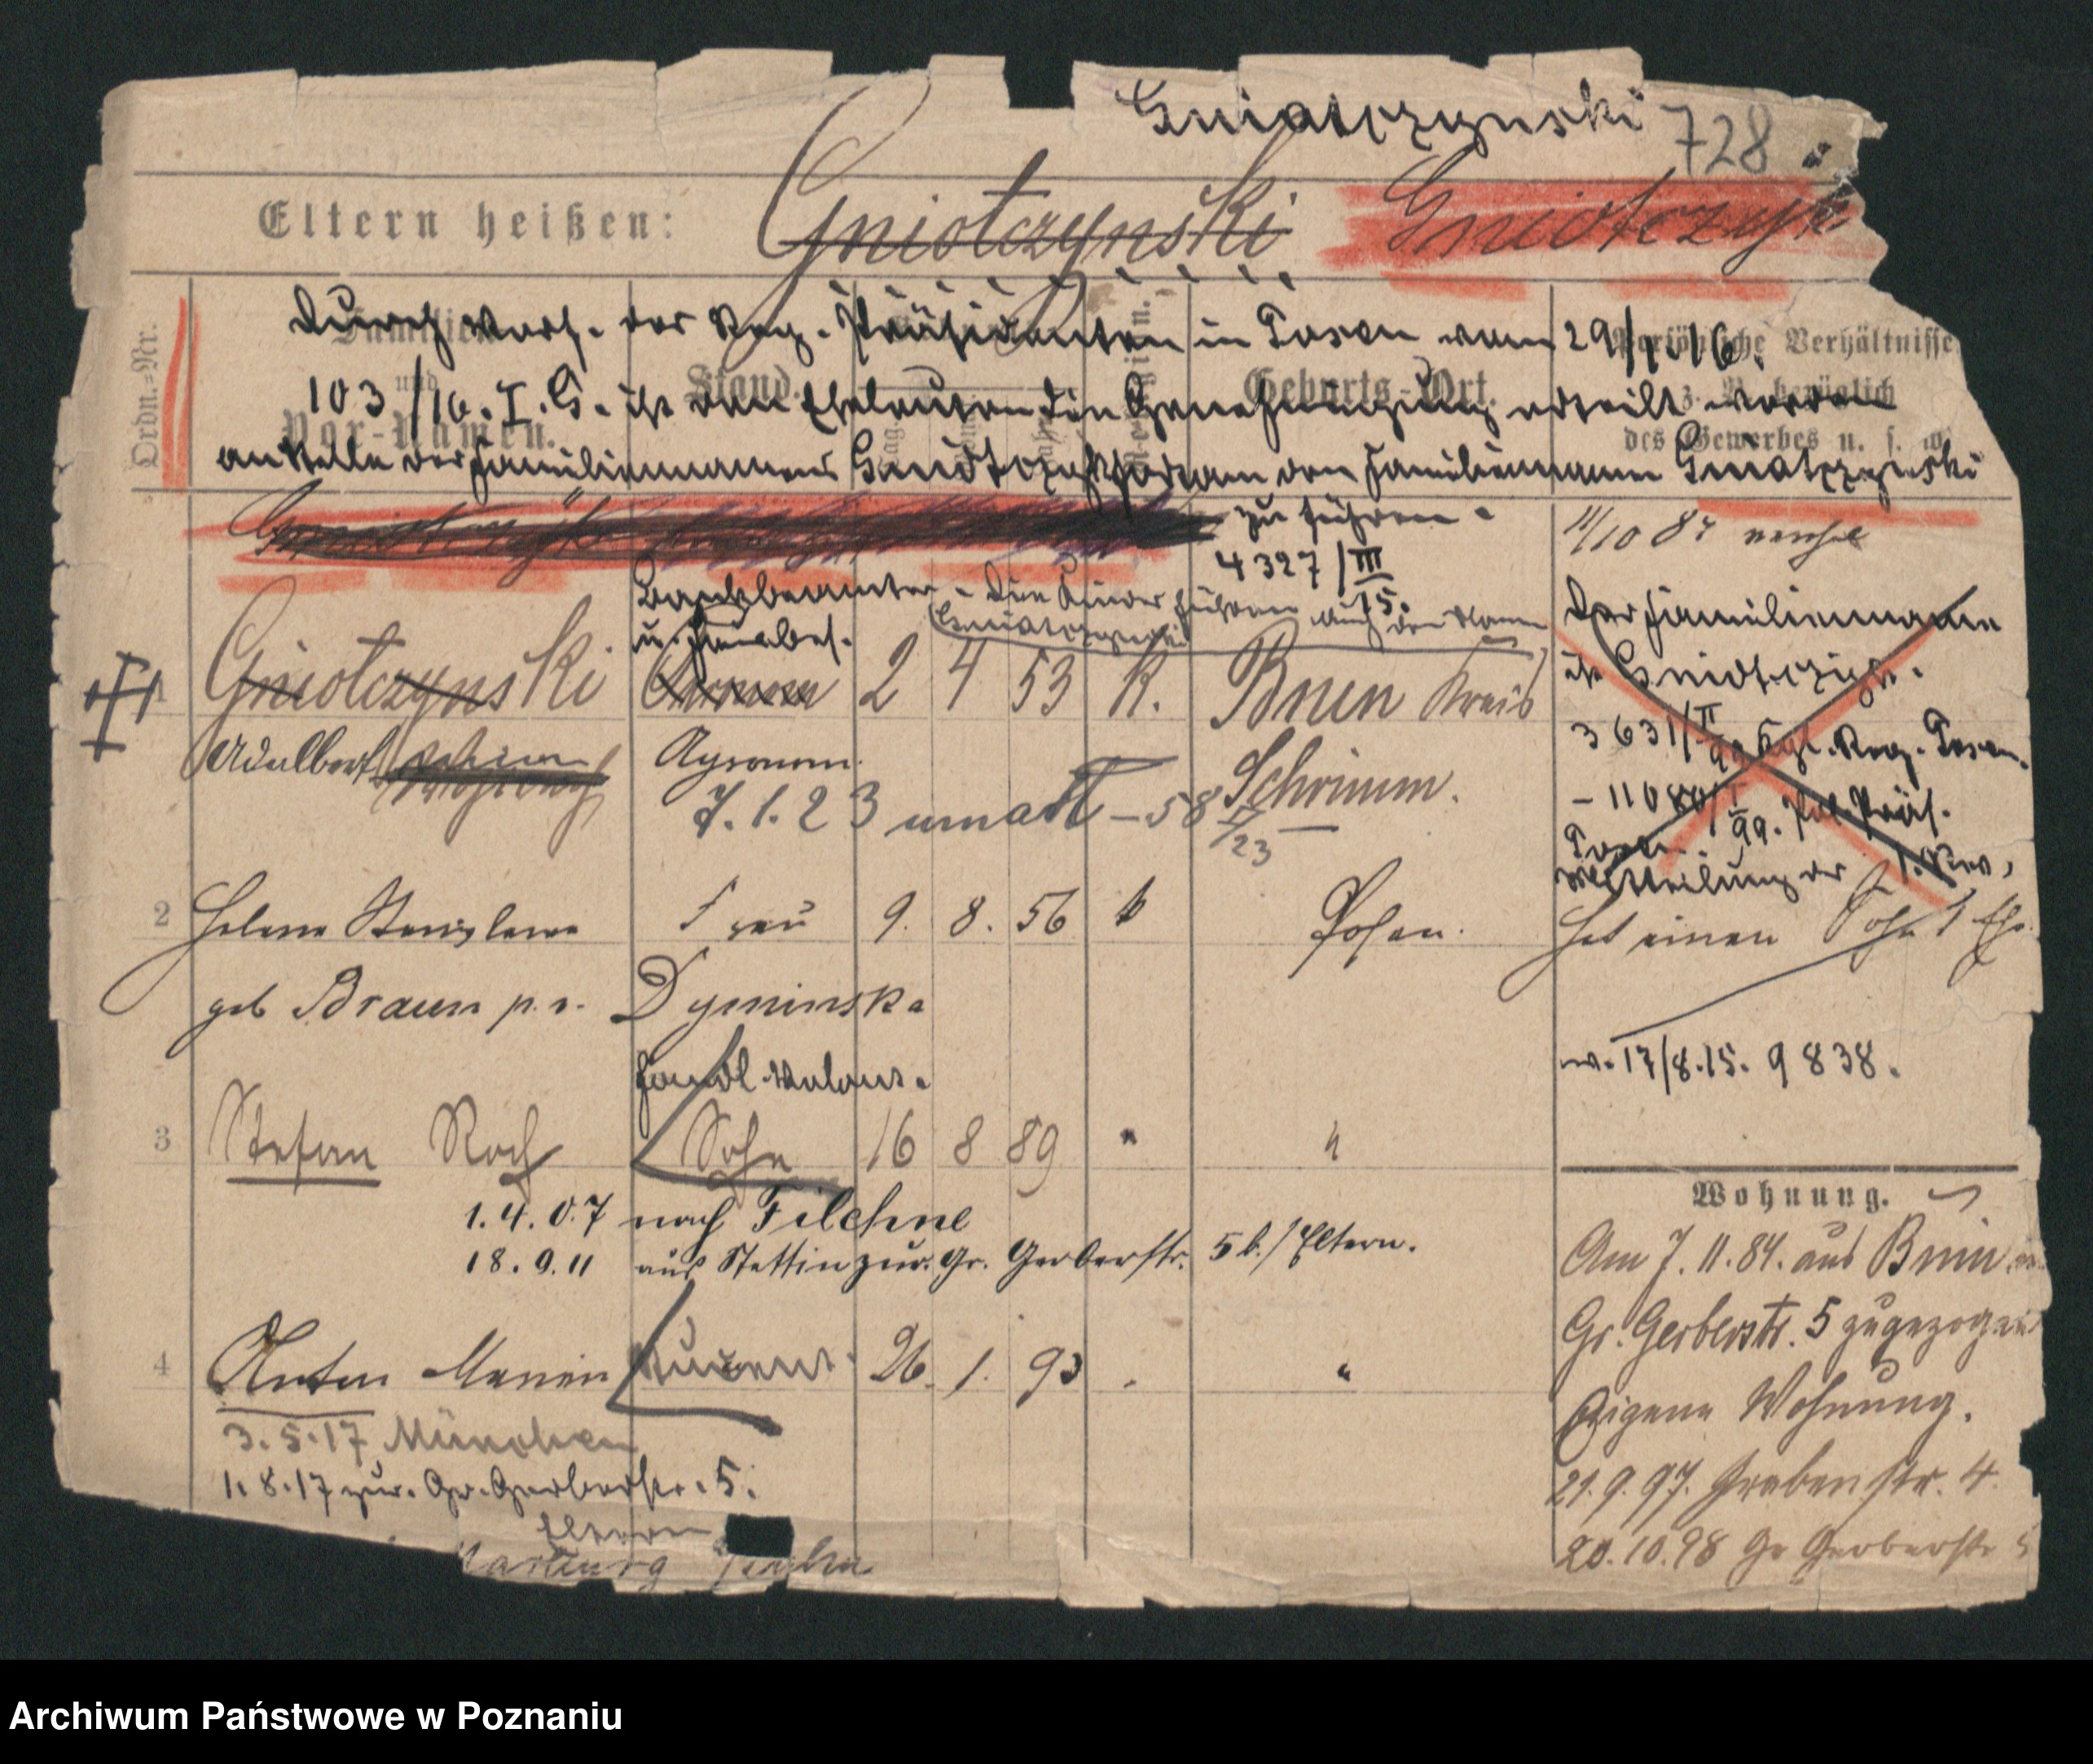 Gniatczynski 728
Eltern heißen: Gniotczynski Gniotczyk
Ordn.=Nr. Familien und Vor-Namen. Stand. Geburts-Ort. Persönliche Verhältnisse z. B. bezüglich des Gewerbes u. s. w.
Durch Verf. des Reg. Präsidenten in Posen vom 29/1.16.
103/16. I. G. ist den Eheleuten die Genehmigung erteilt worden
an Stelle des Familiennamens den Familiennamen Gniatczynski
zu führen.
4327/III 15.
Bankbeamter - Die Kinder führen auch den Namen
u. Hausbes. Gniatczynski
1 Gniotczynski 2 4 53 K. Bnin Kreis
Adalbert Agronom Schrimm.
7. 1. 23 umarł - 58 23
2 Helene Stanislawa Frau 9. 8. 56 k Posen.
geb Braun p. v. Dyminska
Handl. Volont.
3 Stefan Roch Sohn 16 8 89 " "
1. 4. 07 nach Filehne
18. 9. 11 aus Stettin zur. Gr. Gerberstr. 5 b./Eltern.
4 Anton Marian Student 26. 1. 93 . "
3. 5. 17 München
1. 8. 17 zur. Gr. Gerberstr. 5.
Eltern
11/10 87
Der Familienname
ist Gniotczyk.
3631/II 99 Kgl. Reg. Posen.
- 11080/I 99. Pol. Präs.
Posen.
Mitteilung der 1. Rev.
Hat einen Sohn 1 Ehe.
w. 17/8. 15. 9838.
Wohnung.
Am 7. 11. 84. aus Bnin
Gr. Gerberstr. 5 zugezogen
Eigene Wohnung.
21. 9. 97. Grabenstr. 4.
20. 10. 98 Gr Gerberstr 5
Archiwum Państwowe w Poznaniu